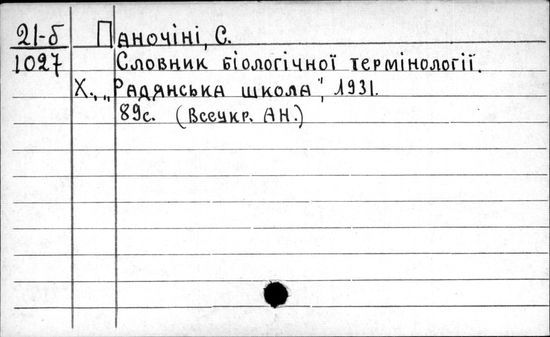 21-б Паночіні, С.
1027 Словник біологічної термінології.
Х., „Радянська школа", 1931.
89с. (Всеукр. АН.)